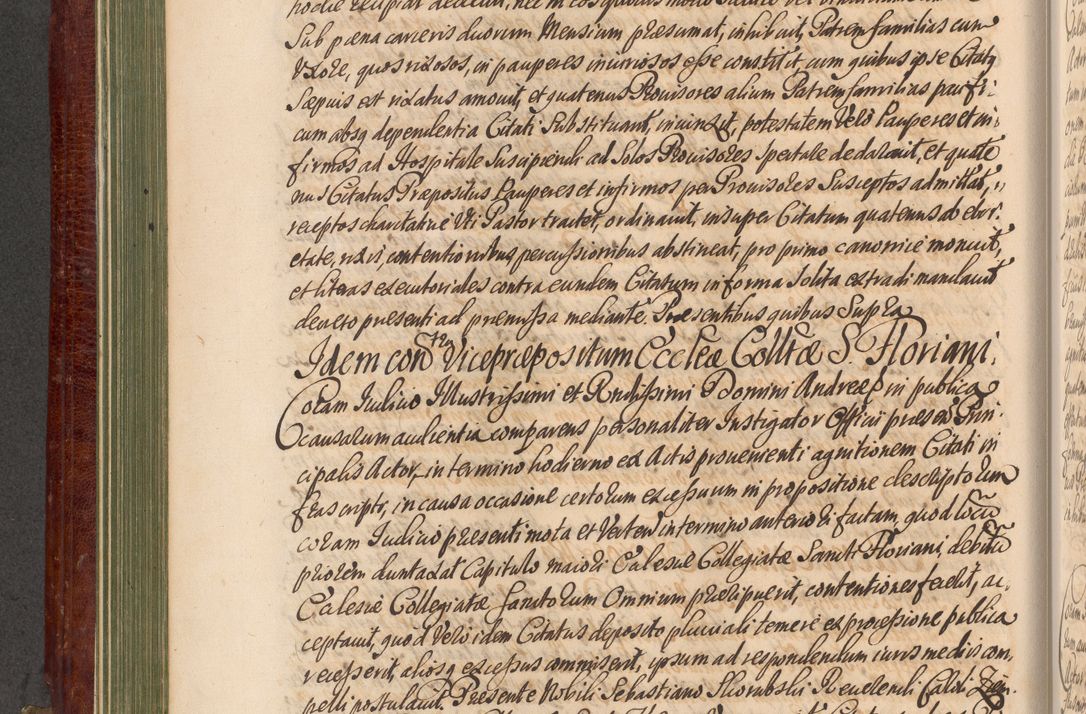 Sub pœna carceris duorum Mensium præsumat, inhibuit, Patremfamilias cum
Uxore, quos rixosos, in pauperes iniuriosos esse constitit, cum quibus ipse Citatq
sæpius est rixatus amouit, et quatenus Prouisores alium Patremfamilias pacifi-
cum absq dependentia Citati Substituant, iniunxit, potestatem Vero Pauperes et in-
firmos ad Hospitale Suscipiendi ad Solos Prouisores spectare declarauit, et quate
nus Citatus Præpositus Pauperes et infirmos per Prouisores Susceptos admittat,
receptos charitatiue Uti Pastor tractet, ordinauit, insuper Citatum quatenus ab ebri-
etate, rixis, contentionibus percussionibus abstineat, pro primo canonice monuit,
et literas executoriales contra eundem Citatum in forma Solita extradi mandauit
decreto presenti ad præmissa mediante. Præsentibus quibus Supra
Idem contra Vicepræpositum Eccleæ Colltæ S. Floriani.
Coram Iudicio Illustrissimi et Rndissimi D Domini Andreæ in publica
causarum audientia comparens personaliter Instigator Officii præsen Prin
cipalis Actor, in termino hodierno ex Actis prouenienti agnitionem Citati in
frascripti, in causa occasione certorum excessuum in propositione descriptorum
coram Iudicio præsenti mota et Verten in termino anteriori factam, quod locum
priorem duntaxat Capitulo maiori Ecclesiæ Collegiatæ Sancti Floriani, debitum
Ecclesiæ Collegiatæ Sanctorum Omnium præripuerit, contentiones fecerit, ac
ceptauit, quod Vero idem Citatus deposito pluuiali temere ex processione publica
recesserit, aliosq excessus commiserit, ipsum ad respondendum iuris mediis com-
pelli postulauit. Præsente Nobili Sebastiano Skorubski Reuerendi